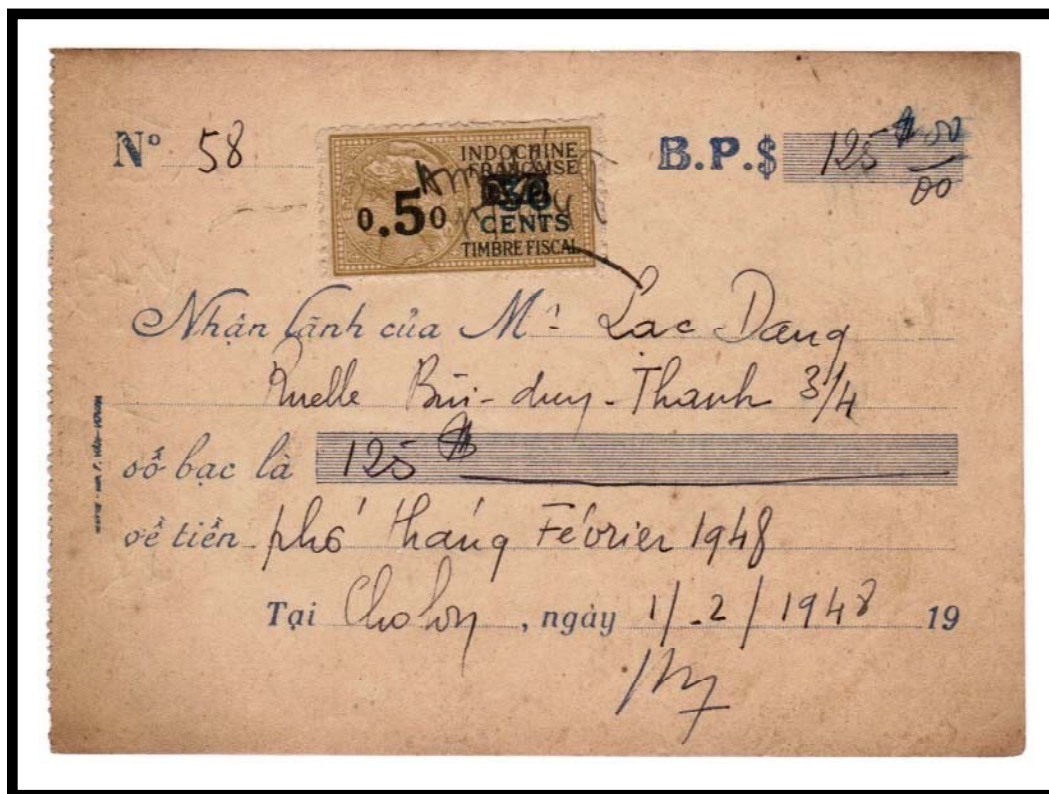 Nº 58
B.P.$ 125 $ 00
00
INDOCHINE
FRANÇAISE
0.50
CENTS
TIMBRE FISCAL
Nhận lãnh của Mʳ Lac Dang
Ruelle Bùi-duy-Thanh 3/4
số bạc là 125 $
về tiền phố tháng Février 1948
Tại Cholon, ngày 1/.2/1948 19